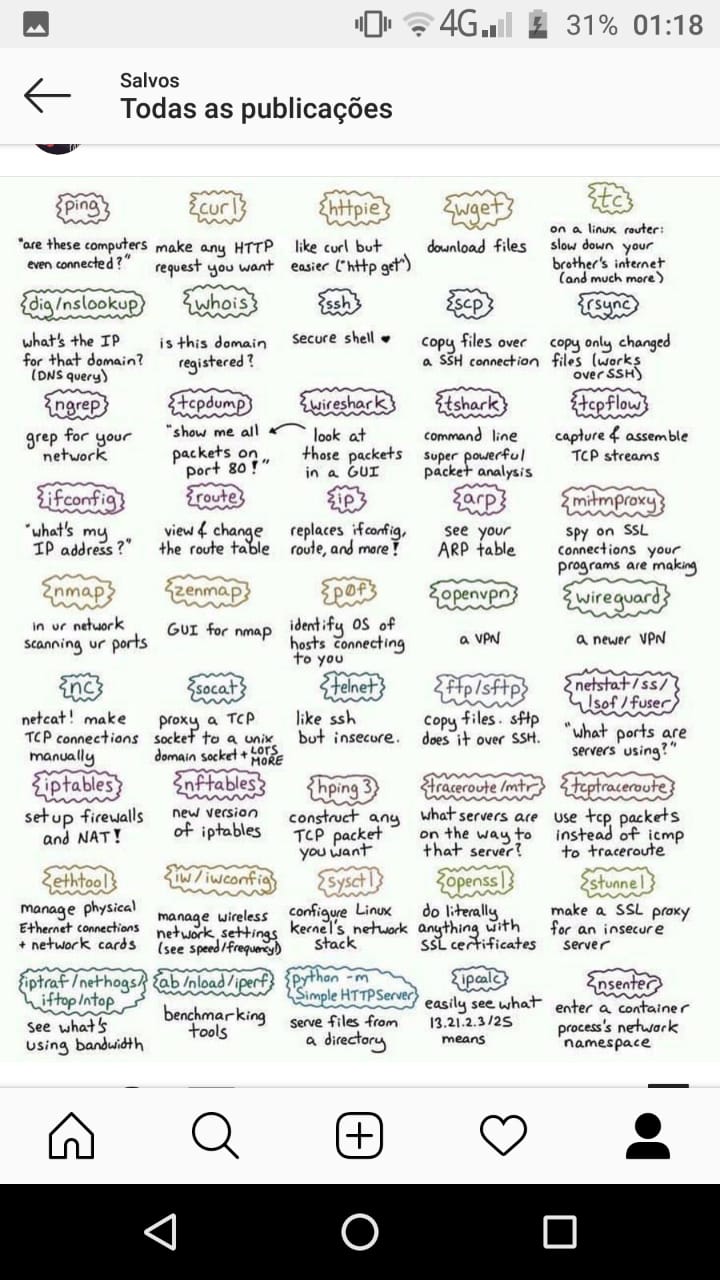 4G 31% 01:18
Salvos
Todas as publicações
ping
"are these computers
even connected?"
curl
make any HTTP
request you want
httpie
like curl but
easier ("http get")
wget
download files
tc
on a linux router:
slow down your
brother's internet
(and much more)
dig/nslookup
what's the IP
for that domain?
(DNS query)
whois
is this domain
registered?
ssh
secure shell ♥
scp
copy files over
a SSH connection
rsync
copy only changed
files (works
over SSH)
ngrep
grep for your
network
tcpdump
"show me all
packets on
port 80!"
wireshark
look at
those packets
in a GUI
tshark
command line
super powerful
packet analysis
tcpflow
capture & assemble
TCP streams
ifconfig
"what's my
IP address?"
route
view & change
the route table
ip
replaces ifconfig,
route, and more!
arp
see your
ARP table
mitmproxy
spy on SSL
connections your
programs are making
nmap
in ur network
scanning ur ports
zenmap
GUI for nmap
p0f
identify OS of
hosts connecting
to you
openvpn
a VPN
wireguard
a newer VPN
nc
netcat! make
TCP connections
manually
socat
proxy a TCP
socket to a unix
domain socket + LOTS
MORE
telnet
like ssh
but insecure.
ftp/sftp
copy files. sftp
does it over SSH.
netstat/ss/
lsof/fuser
"what ports are
servers using?"
iptables
set up firewalls
and NAT!
nftables
new version
of iptables
hping3
construct any
TCP packet
you want
traceroute/mtr
what servers are
on the way to
that server?
tcptraceroute
use tcp packets
instead of icmp
to traceroute
ethtool
manage physical
Ethernet connections
+ network cards
iw/iwconfig
manage wireless
network settings
(see speed/frequency!)
sysctl
configure Linux
kernel's network
stack
openssl
do literally
anything with
SSL certificates
stunnel
make a SSL proxy
for an insecure
server
iptraf/nethogs/
iftop/ntop
see what's
using bandwidth
ab/nload/iperf
benchmarking
tools
python -m
SimpleHTTPServer
serve files from
a directory
ipcalc
easily see what
13.21.2.3/25
means
nsenter
enter a container
process's network
namespace